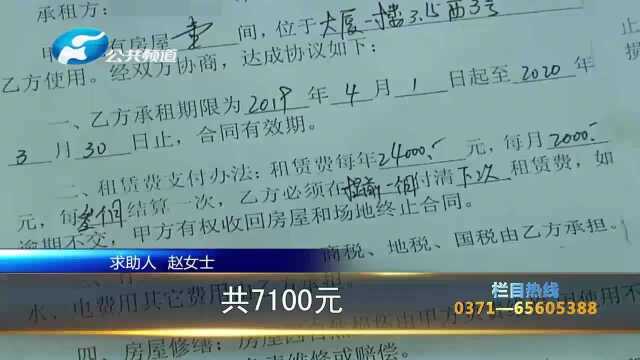 承租方：
公共频道
有房屋 壹 间，位于大厦一楼3.15西3号
乙方使用。经双方协商，达成协议如下：
一、乙方承租期限为2019年4月1日起至2020年
3月30日止，合同有效期。
二、租赁费支付办法：租赁费每年24000.元，每月2000.
元，每叁个结算一次，乙方必须在提前一个付清下次租赁费，如
逾期不交，甲方有权收回房屋和场地终止合同。
商税、地税、国税由乙方承担。
求助人 赵女士
水、电费用其它费用
共7100元
栏目热线
0371—65605388
四、房屋修缮：房屋